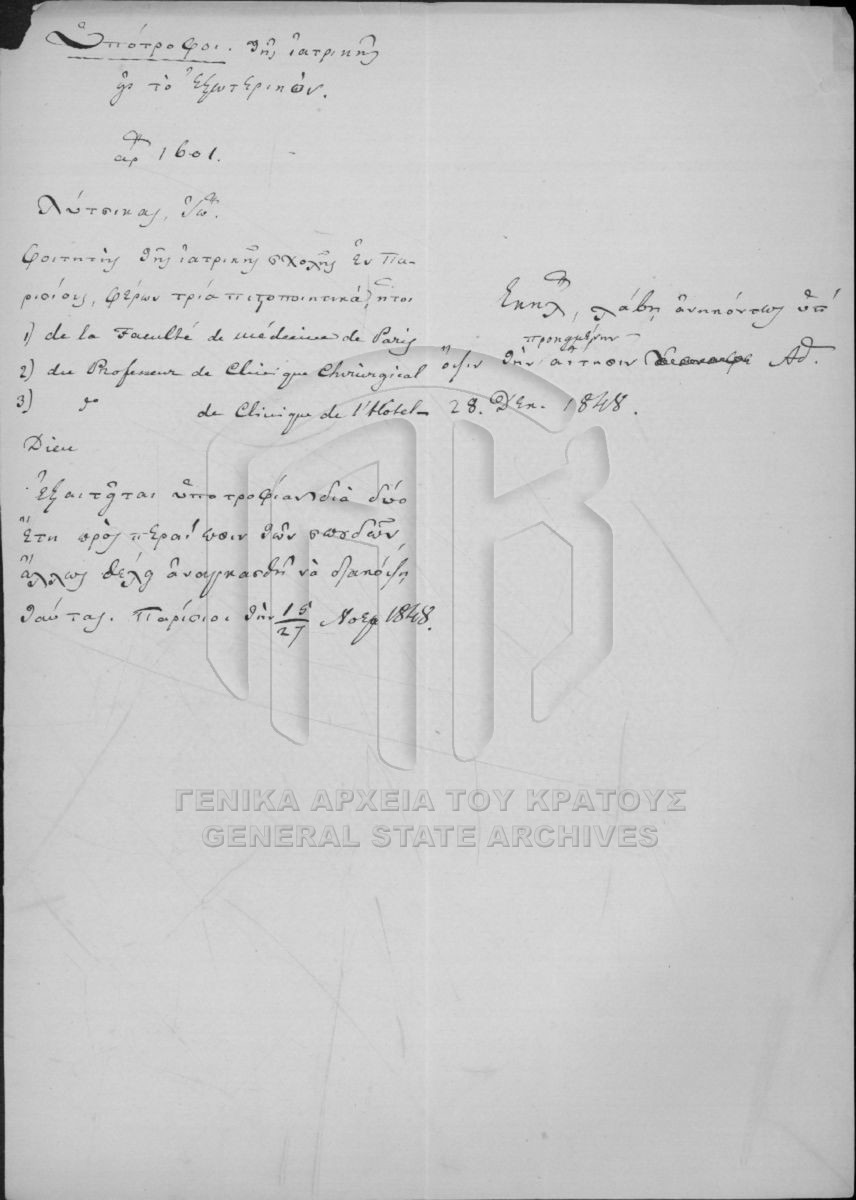 Ὑπότροφοι τῆς ἰατρικῆς
εἰς τὸ Ἐξωτερικόν.
ἀρ 1601.
Λύτσικας, Ἰω.
Φοιτητὴς τῆς ἰατρικῆς σχολῆς ἐν Πα-
ρισίοις, φέρων τρία πιστοποιητικά, ἤτοι
1) de la Faculté de médecine de Paris
2) du Professeur de Clinique Chirurgical
3) dο de Clinique de l'Hotel-
Dieu
Ἐξαιτεῖται ὑποτροφίαν διὰ δύο
ἔτη πρὸς περαίωσιν τῶν σπουδῶν,
ἄλλως θέλει ἀναγκασθῆ νὰ διακόψῃ
ταύτας. Παρίσιοι τὴν 15/27 Νοεμ 1848.
λάβῃ ἀνηκόντως ὑπ'
προκειμένην
ὄψιν τὴν αἴτησιν Ἀθ.
28. Δεκ. 1848.
ΓΕΝΙΚΑ ΑΡΧΕΙΑ ΤΟΥ ΚΡΑΤΟΥΣ
GENERAL STATE ARCHIVES